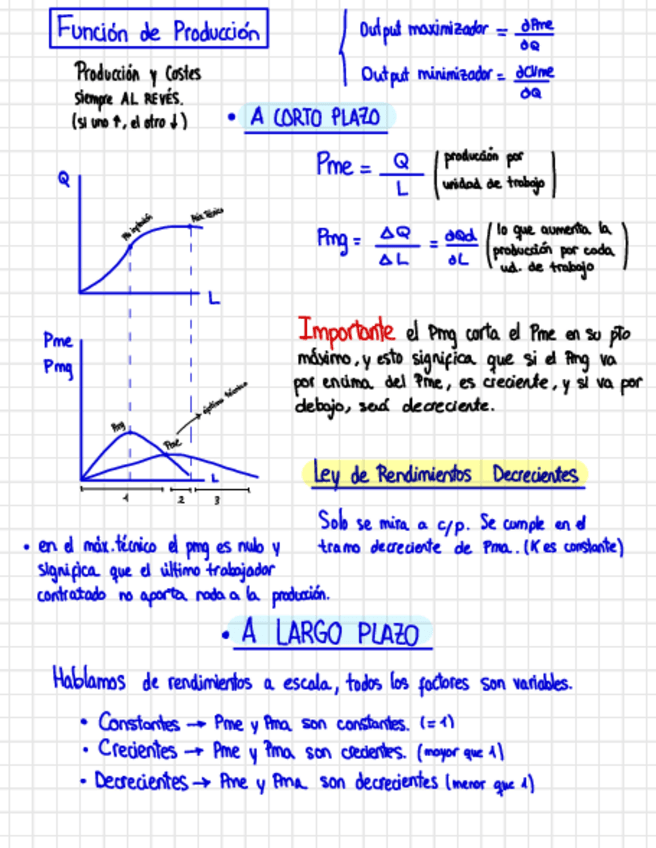 Función de Producción
Output maximizador = ∂Pme / ∂Q
Output minimizador = ∂CVme / ∂Q
Producción y Costes
siempre AL REVÉS.
(si uno ↑, el otro ↓)
• A CORTO PLAZO
Pme = Q / L (producción por
unidad de trabajo)
Q
Pto inflexión
Máx. técnico
L
Pmg = ΔQ / ΔL = ∂Qd / ∂L (lo que aumenta la
producción por cada
ud. de trabajo)
Pme
Pmg
Importante el Pmg corta el Pme en su pto
máximo, y esto significa que si el Pmg va
por encima del Pme, es creciente, y si va por
debajo, será decreciente.
óptimo técnico
Pmg
Pme
L
1 2 3
Ley de Rendimientos Decrecientes
Solo se mira a c/p. Se cumple en el
tramo decreciente de Pma. (K es constante)
• en el máx. técnico el pmg es nulo y
significa que el último trabajador
contratado no aporta nada a la producción.
• A LARGO PLAZO
Hablamos de rendimientos a escala, todos los factores son variables.
• Constantes → Pme y Pma son constantes. (= 1)
• Crecientes → Pme y Pma son crecientes. (mayor que 1)
• Decrecientes → Pme y Pma son decrecientes (menor que 1)